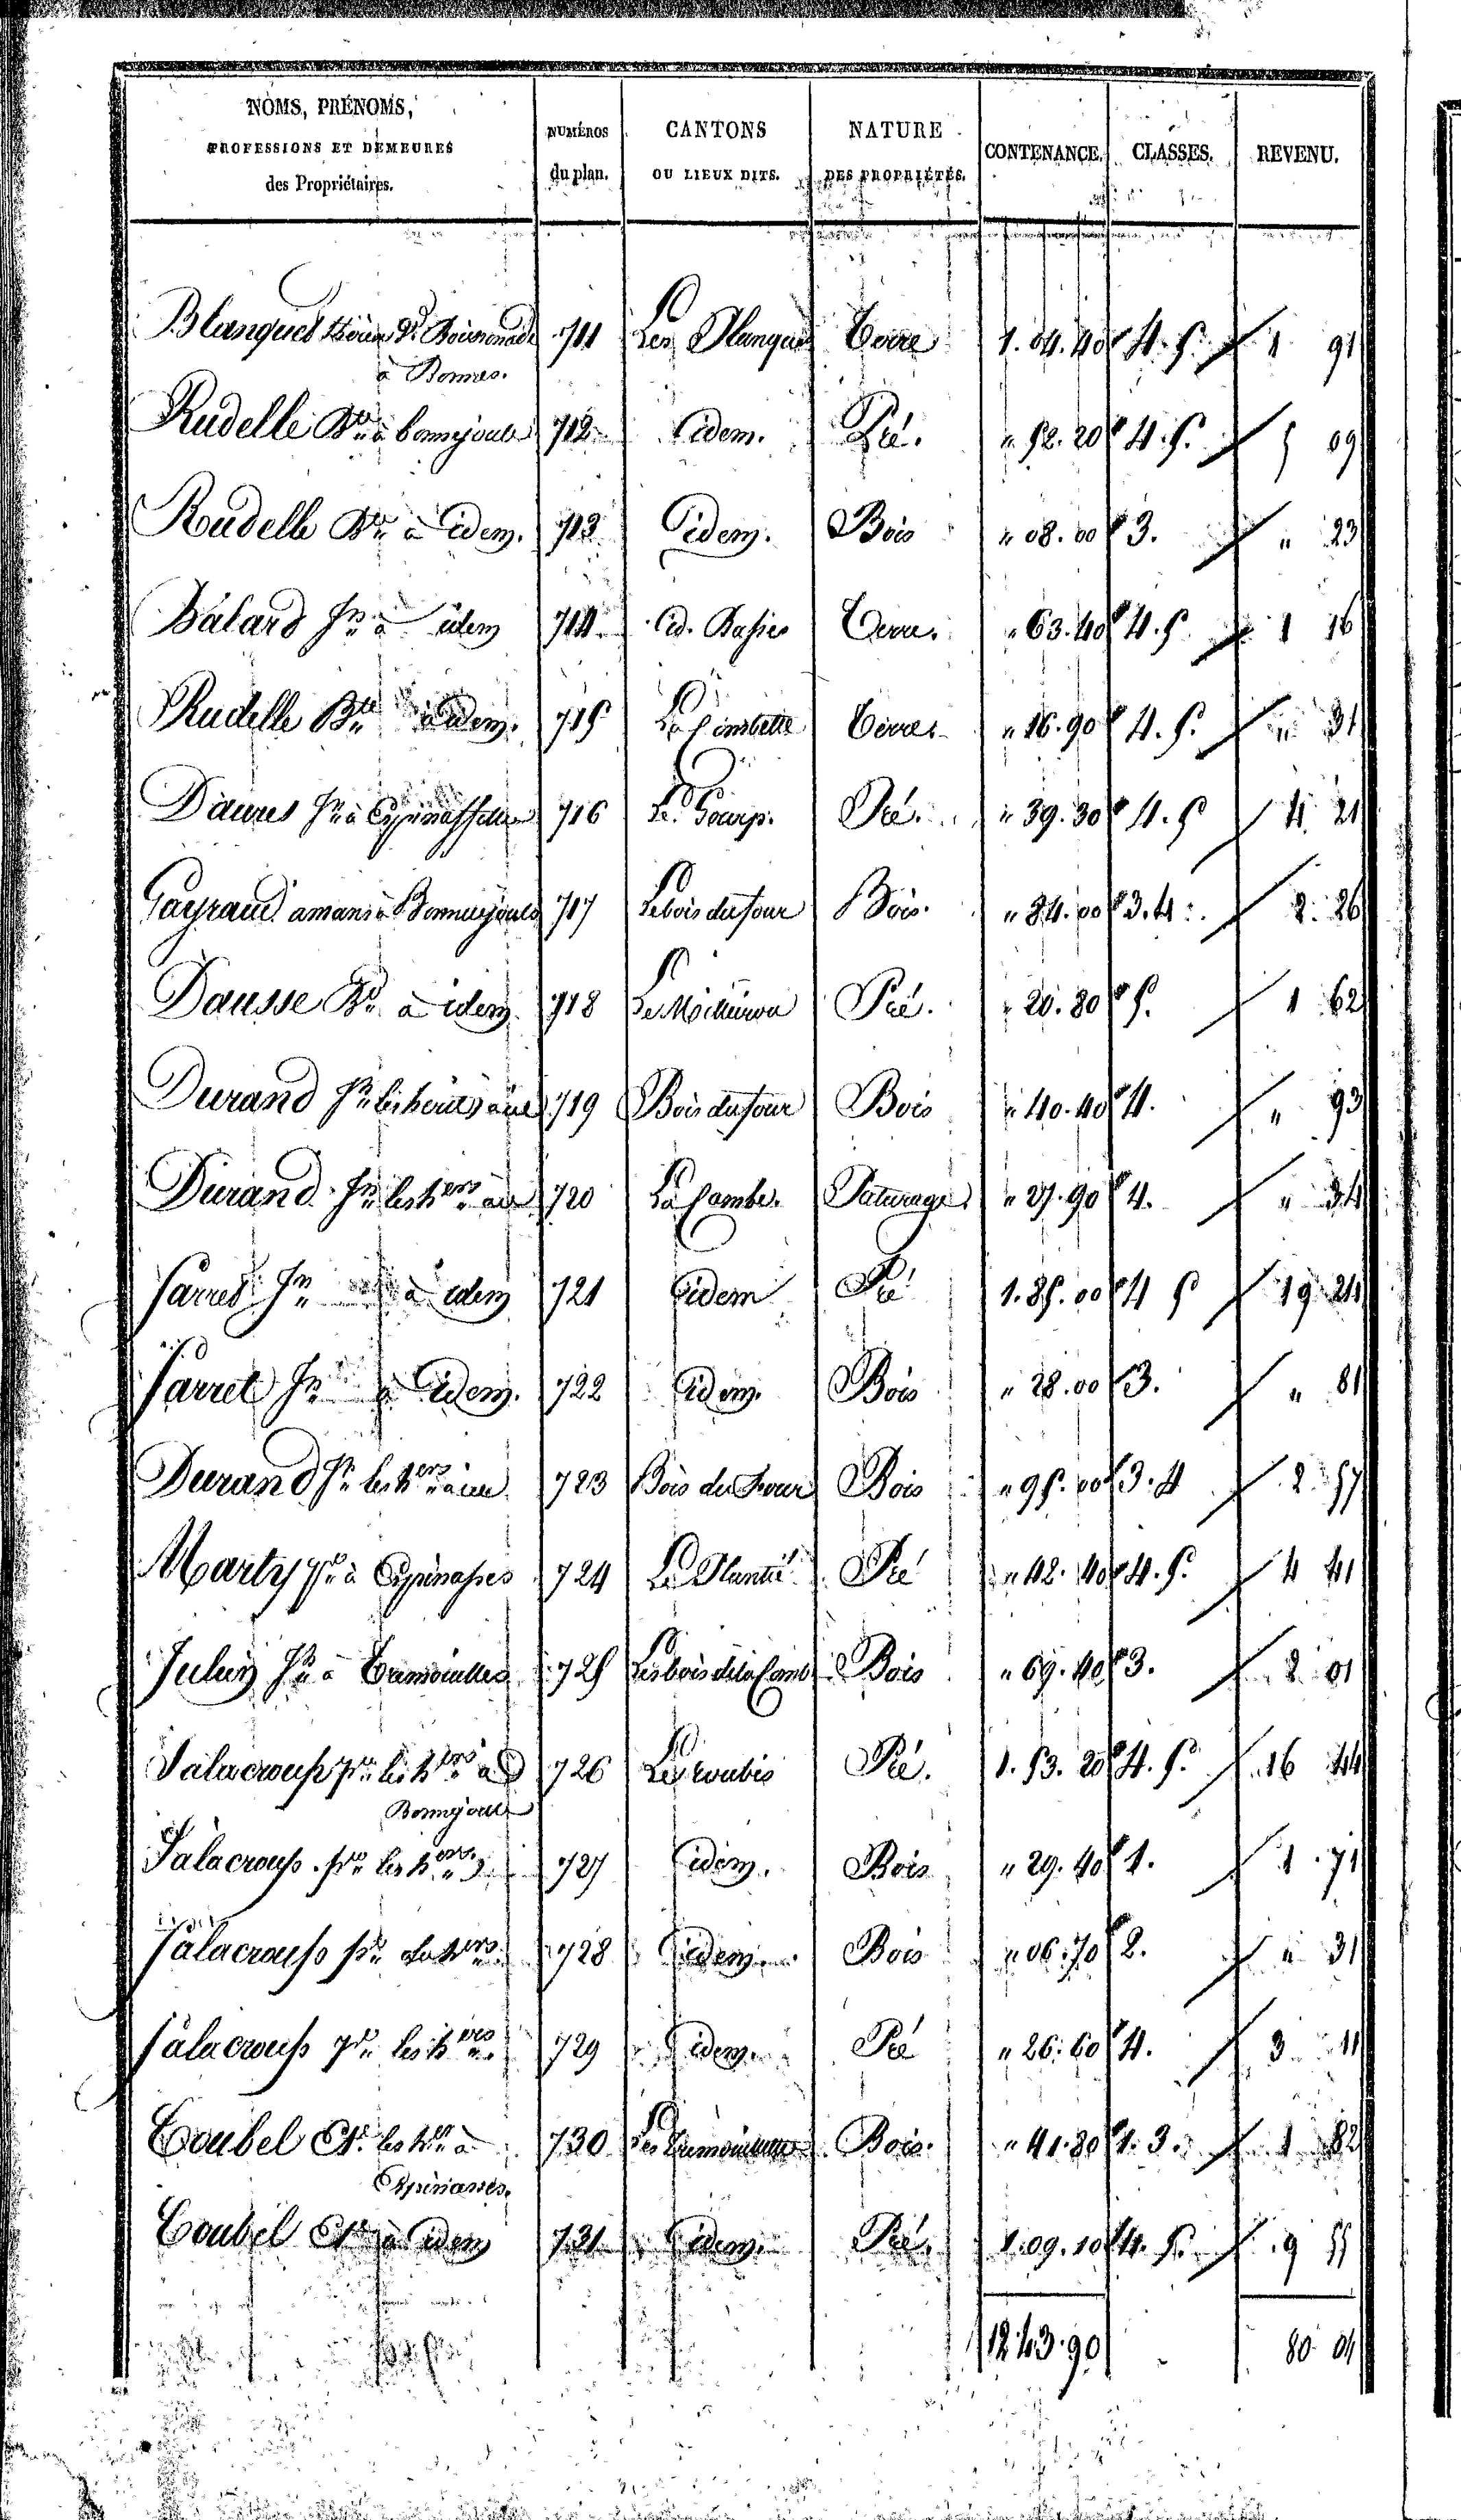 NOMS, PRÉNOMS, PROFESSIONS ET DEMEURES des Propriétaires. | NUMÉROS du plan. | CANTONS OU LIEUX DITS. | NATURE DES PROPRIÉTÉS. | CONTENANCE. | CLASSES. | REVENU.
Blanquet | 711 | Les Planques | Terre | 1. 04. 40 | 4. 5. | 1 91
à Bomes.
Rudelle Bte à bonnejouls | 712 | idem. | Pré. | " 52. 20 | 4. 5. | 5 09
Roudelle Bte à idem. | 713 | idem. | Bois | " 08. 00 | 3. | " 23
Balard Jn à idem | 714 | id. Basses | Terre. | " 63. 40 | 4. 5 | 1 16
Rudelle Bte à idem. | 715 | La Combette | Terre. | " 16. 90 | 4. 5. | " 31
Daures Jn à | 716 | Le Gourp. | Pré. | " 39. 30 | 4. 5 | 4 21
Gayraud amans à Bonnejouls | 717 | Le bois du four | Bois. | " 84. 00 | 3. 4. | 2. 26
Dausse à idem. | 718 | Le | Pré. | " 20. 80 | 5. | 1 62
Durand Jn les heritrs | 719 | Bois du four | Bois | " 40. 40 | 4. | " 93
Durand Jn les hers | 720 | La Combe. | Paturage | " 27. 90 | 4. | " 34
Sarret Jn à idem | 721 | idem | Pré | 1. 85. 00 | 4 5 | 19 24
Sarret Jn à idem. | 722 | idem. | Bois | " 28. 00 | 3. | " 81
Durand Jn les hers | 723 | Bois du Four | Bois | " 95. 00 | 3. 4 | 2. 57
Marty à Espinasses | 724 | Le Plantié | Pré | " 42. 40 | 4. 5. | 4 41
Julien Jn à Tremouilles | 725 | Les bois de la Comb | Bois | " 69. 40 | 3. | 2 01
Salacroup pre les hers à | 726 | Les | Pré. | 1. 53. 20 | 4. 5. | 16 44
Bonnejouls
Salacroup pre les hers | 727 | idem. | Bois | " 29. 40 | 1. | 1. 71
Salacroup pre les hers | 728 | idem. | Bois | " 06. 70 | 2. | " 31
Salacroup pre les hers | 729 | idem. | Pré | " 26. 60 | 4. | 3 11
Coubel Et. les hers à | 730 | Les | Bois. | " 41. 80 | 1. 3. | 1 82
Espinasses.
Coubel Et. à idem | 731 | idem. | Pré. | 1. 09. 10 | 4. 5. | 9 55
12. 43. 90 | 80 04